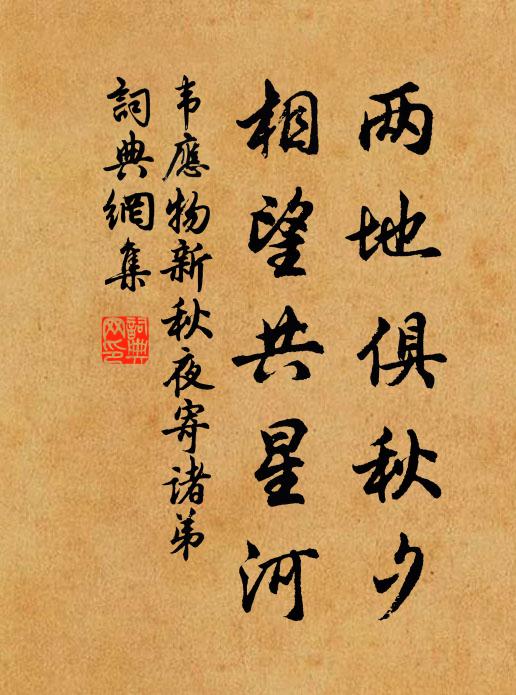 两地俱秋夕
相望共星河
韦應物新秋夜寄诸弟
詞典網集
詞典网印